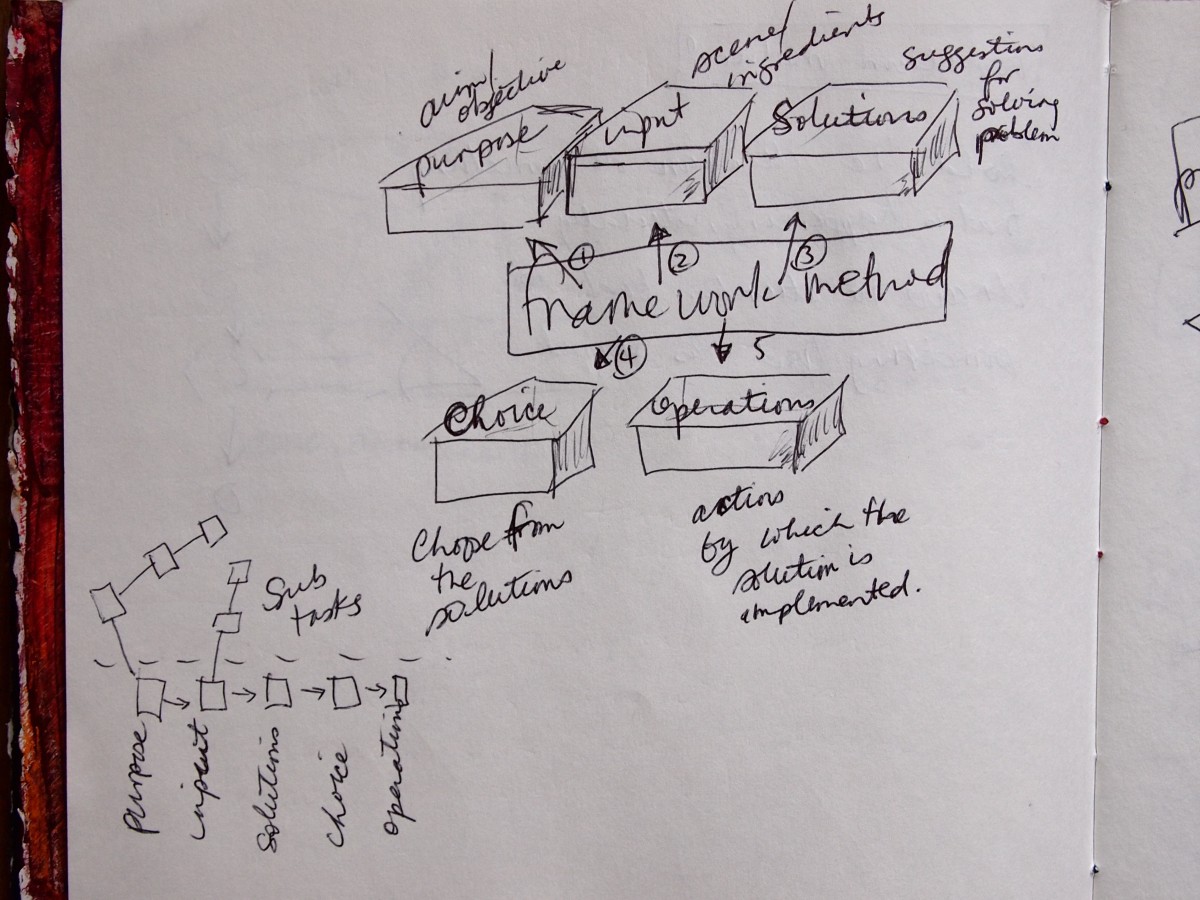 aim/
objective
purpose
scene/
ingredients
input
Solutions
suggestions
for
solving
problem
1
2
3
Framework method
4
5
Choice
operations
Choose from
the
solutions
actions
by which the
solution is
implemented.
Sub
tasks
purpose
input
solutions
choice
operations